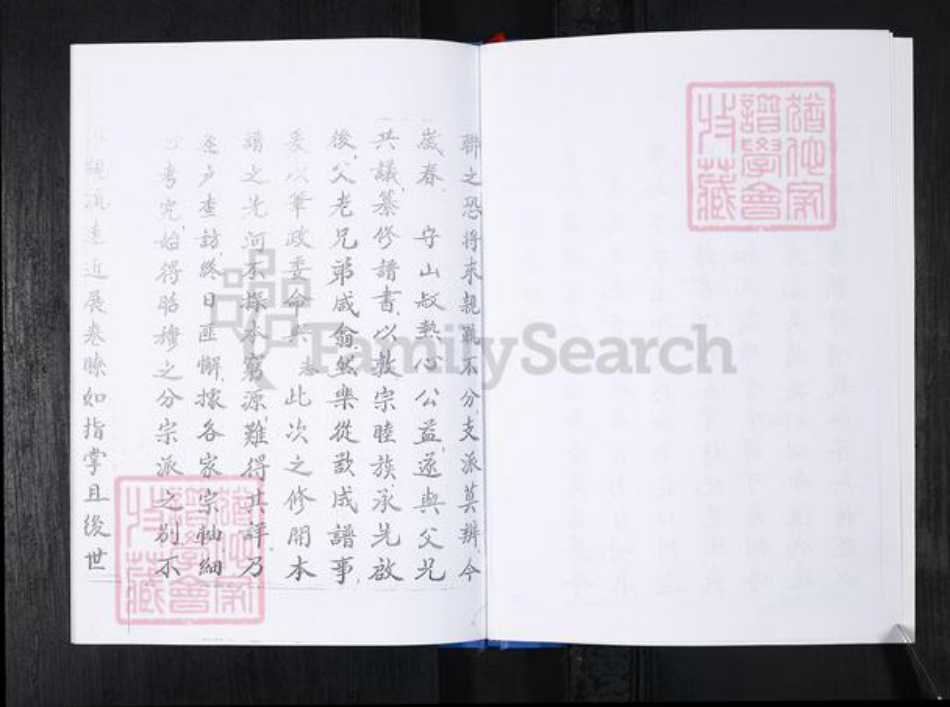 聯之恐將來親疏不分支派莫辨今
歲春 守山叔熱心公益遂與父兄
共議纂修譜書以敦宗睦族承先啟
後父老兄弟咸翕然樂從欵成譜事
爰以筆政委命與 此次之修開本
譜之先河不探本窮源難得其詳乃
逐户查訪終日匪懈據各家宗軸細
心考究始得昭穆之分宗派之別不
親 遠近展卷瞭如指掌且後世
FamilySearch
家譜學會收藏
家譜學會收藏